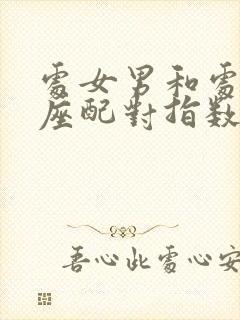 處女男和處
座配對指数
吾心此處心安